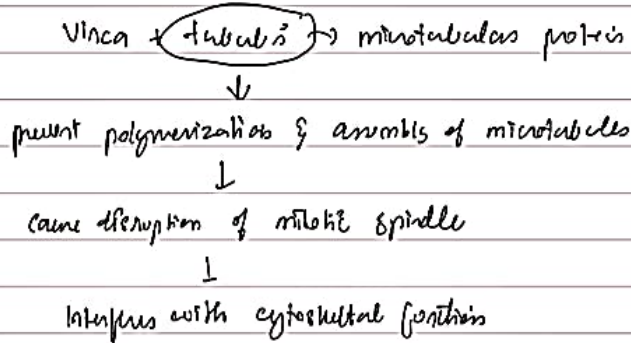 Vinca + tubulin → microtubular protein
↓
prevent polymerization & assembly of microtubules
↓
cause disruption of mitotic spindle
↓
Interferes with cytoskeletal functions